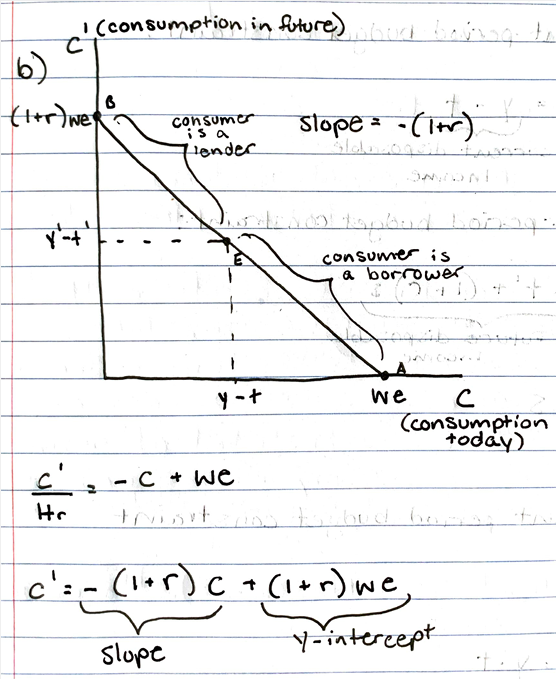 C' (consumption in future)
b)
B
(1+r)we
consumer
is a
lender
slope = -(1+r)
y'-t'
E
consumer is
a borrower
A
y-t
we
C
(consumption
today)
C'/Hr = -C + we
C' = -(1+r)C + (1+r)we
slope
y-intercept